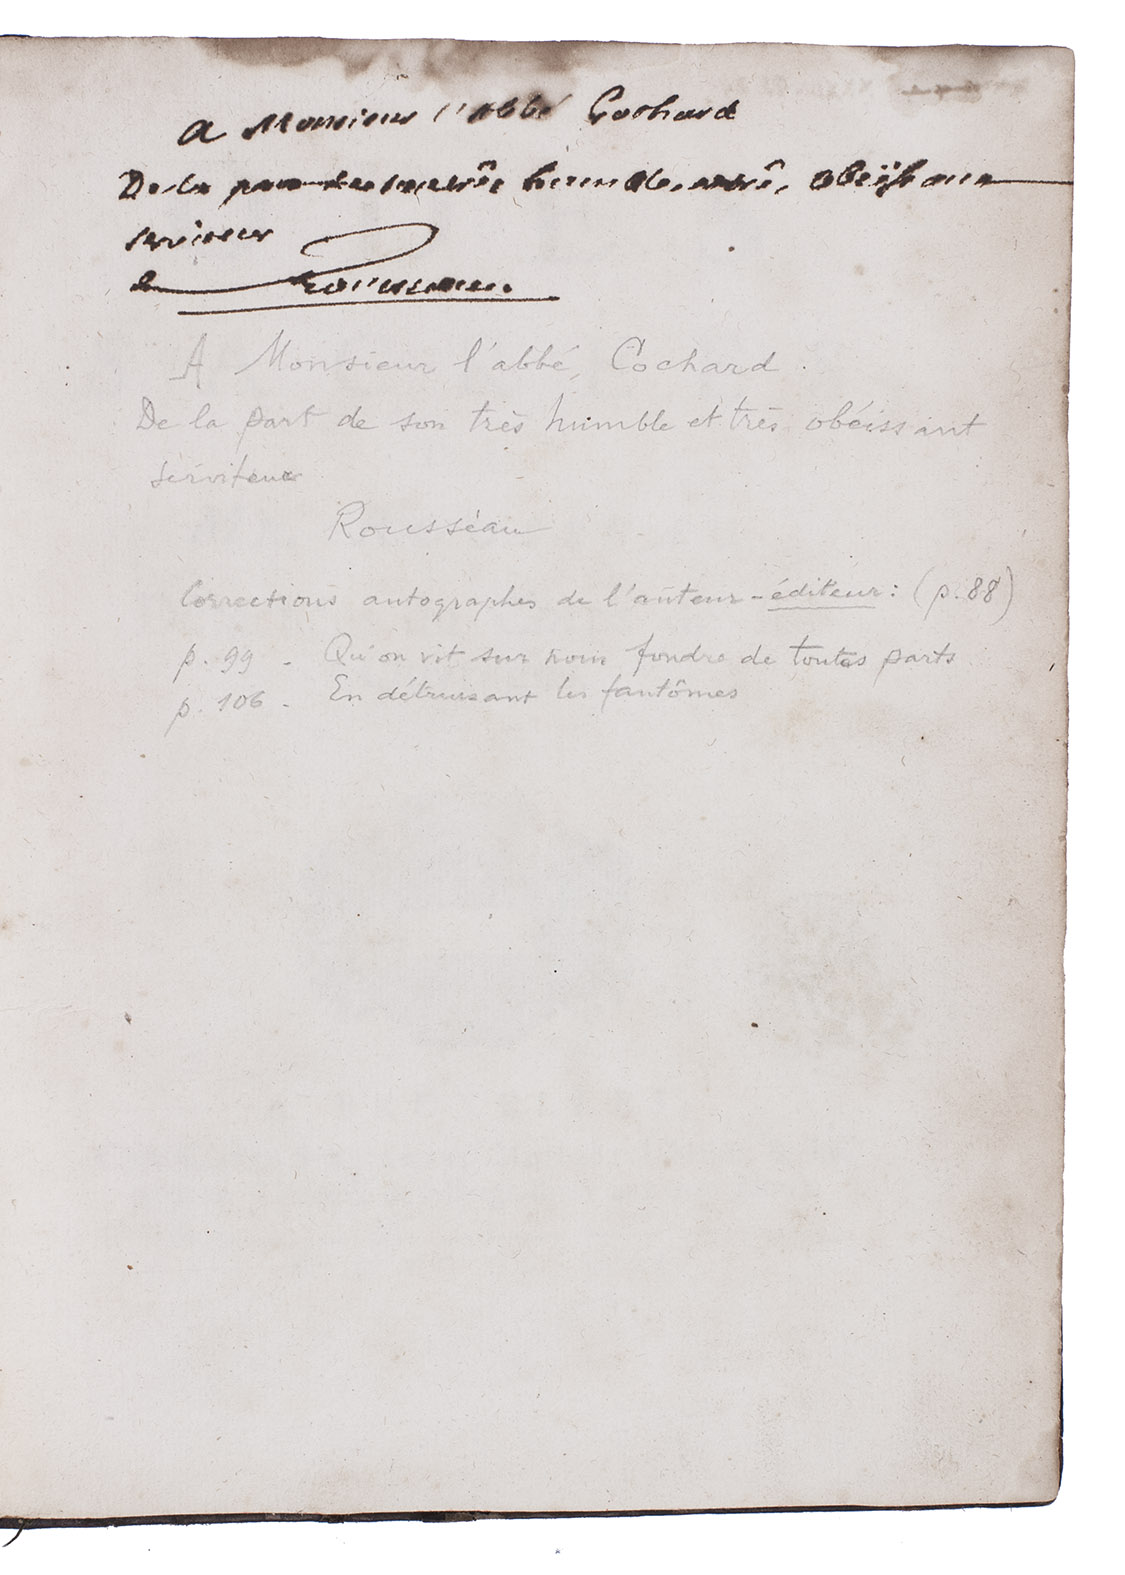 a Monsieur l'abbé Cochard
De la part de son très humble, et très, obeïssant
serviteur
A Monsieur l'abbé, Cochard.
De la part de son très humble et très obéissant
serviteur
Rousséau
Corrections autographes de l'auteur-éditeur: (p. 88)
p. 99 - Qu'on vit sur nous fondre de toutes parts
p. 106 - En détruisant les fantômes